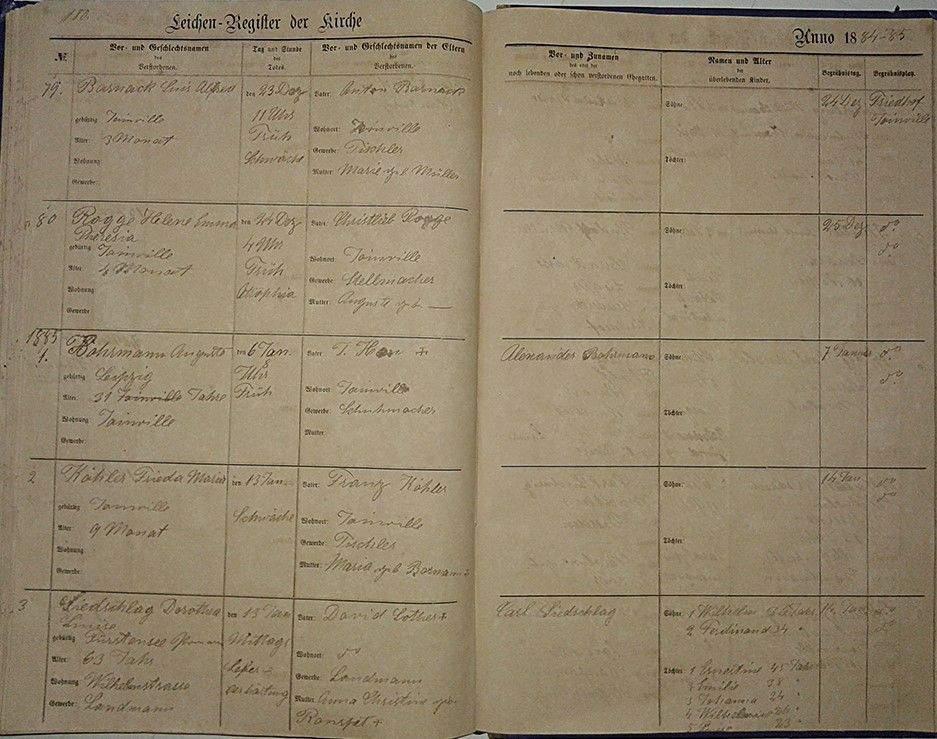 180.
Leichen-Register der Kirche
Anno 1884-85.
№
Vor- und Geschlechtsnamen
des
Verstorbenen.
Tag und Stunde
des
Todes.
Vor- und Geschlechtsnamen der Eltern
des
Verstorbenen.
Vor- und Zunamen
des oder der
noch lebenden oder schon verstorbenen Ehegatten.
Namen und Alter
der
überlebenden Kinder.
Begräbnißtag.
Begräbnißplatz.
79.
Barnack Luis Alfred
gebürtig Joinville
Alter: 3 Monat
Wohnung:
Gewerbe:
den 23 Dez
11 Uhr
Früh
Schwäche
Vater: Anton Barnack
Wohnort: Joinville
Gewerbe: Tischler
Mutter: Marie geb. Müller
Söhne:
Töchter:
24 Dez
Friedhof
Joinville
80
Rogge Helene Emma
Theresia
gebürtig Joinville
Alter: 4 Monat
Wohnung:
Gewerbe:
den 24 Dez
4 Uhr
Früh
Vater: Christlieb Rogge
Wohnort: Joinville
Gewerbe: Stellmacher
Mutter: Auguste geb. —
Söhne:
Töchter:
25 Dez
do
do
1885
1.
Bohrmann Auguste
gebürtig Leipzig
Alter: 31 Joinville Jahre
Wohnung: Joinville
Gewerbe:
den 6 Jan.
Uhr
Früh
Vater: +
Wohnort: Joinville
Gewerbe: Schuhmacher
Mutter:
Alexander Bohrmann
Söhne:
Töchter:
7 Januar
do
do
2
Köhler Frieda Marie
gebürtig Joinville
Alter: 9 Monat
Wohnung:
Gewerbe:
den 13 Jan
Schwäche
Vater: Franz Köhler
Wohnort: Joinville
Gewerbe: Tischler
Mutter: Maria geb.
Söhne:
Töchter:
14 Jan
do
do
3
Siedschlag Dorothea
Luise
gebürtig
Alter: 63 Jahr
Wohnung: Wilhelmstrasse
Gewerbe: Landmann
den 13 Jan
Mittags
Leber-
Vater: David +
Wohnort: do
Gewerbe: Landmann
Mutter: Anna Christine geb.
+
Carl Siedschlag
Söhne: 1 Wilhelm
2 Ferdinand 34 "
Töchter: 1 Ernestine 45 Jahr
2 Emilie 38 "
3 Johanna 24 "
4 Wilhelmine 26 "
23 "
14 Jan
do
do